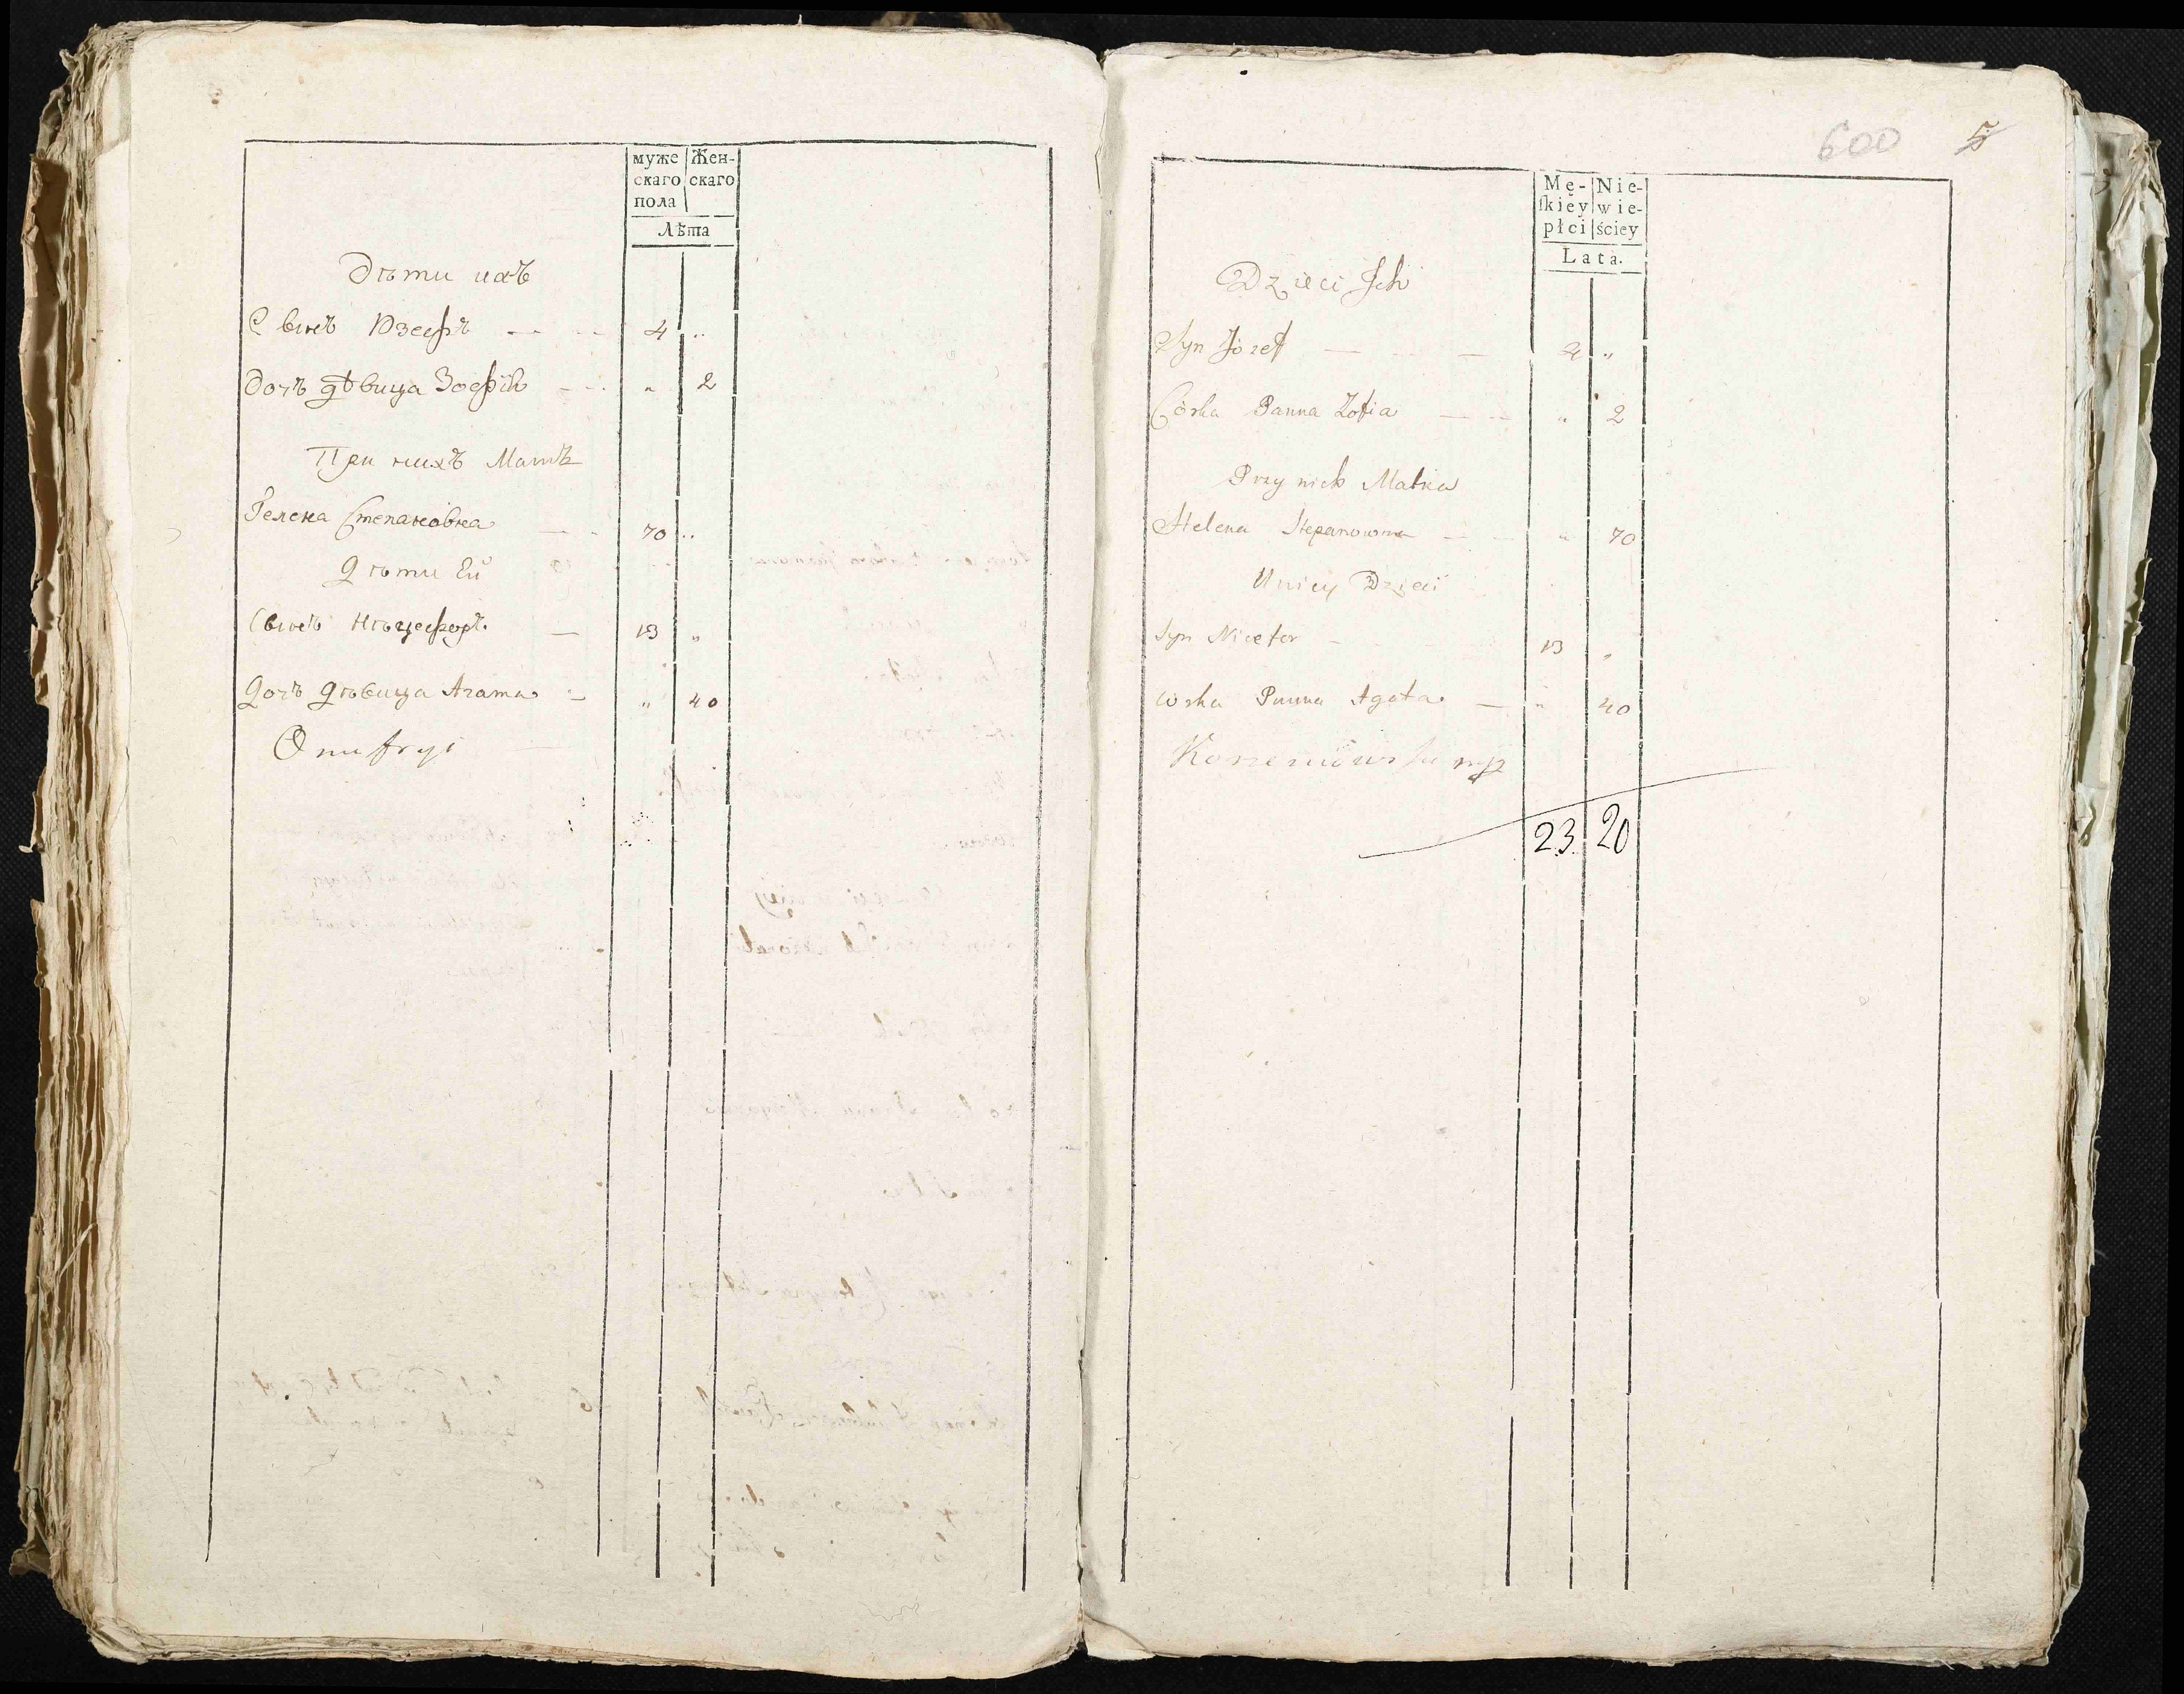 муже Жен-
скаго скаго
пола
Лѣта
Дѣти ихъ
Сынъ Юзефъ 4 "
Дочь дѣвица Зофія " 2
При нихъ Мать
Гелена Степановна 70 "
Дѣти Ей
Сынъ Нѣцефоръ 13 "
Дочь дѣвица Агата " 40
Onufryi
600 5
Mę- Nie-
skiey wie-
płci ściey
Lata.
Dzieci Ich
Syn Józef 4 "
Córka Panna Zofia " 2
Przy nich Matka
Helena Stepanowna " 70
U niey Dzieci
Syn Nicefor 13 "
córka Panna Agata " 40
mp
23. 20